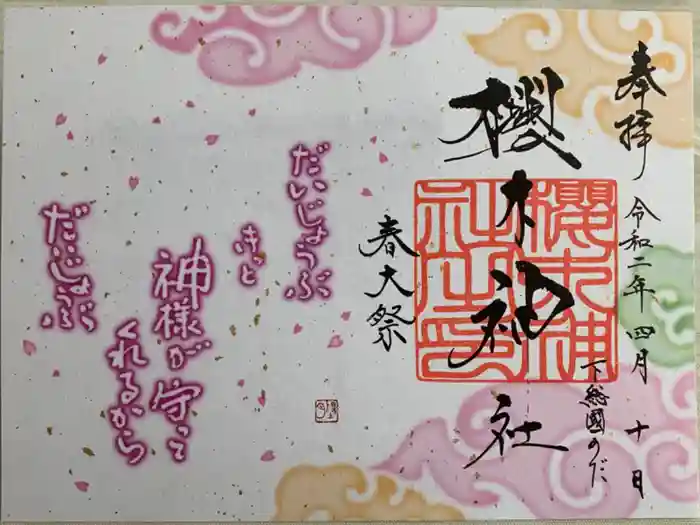 奉拝
令和二年四月十日
下総國のだ
櫻木神社
櫻木神社之印
春大祭
だいじょうぶ
きっと
神様が守って
くれるから
だいじょぶ